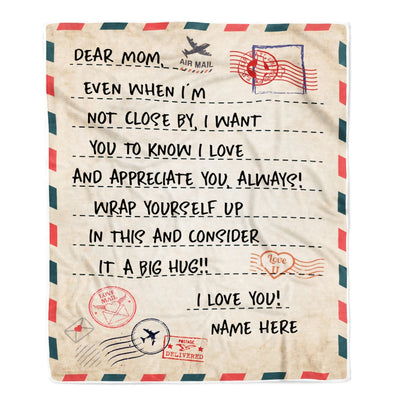 DEAR MOM,
AIR MAIL
EVEN WHEN I'M
NOT CLOSE BY, I WANT
YOU TO KNOW I LOVE
AND APPRECIATE YOU, ALWAYS!
WRAP YOURSELF UP
IN THIS AND CONSIDER
IT A BIG HUG!!
Love
U
I LOVE YOU!
LOVE
MAIL
NAME HERE
POSTAGE
DELIVERED